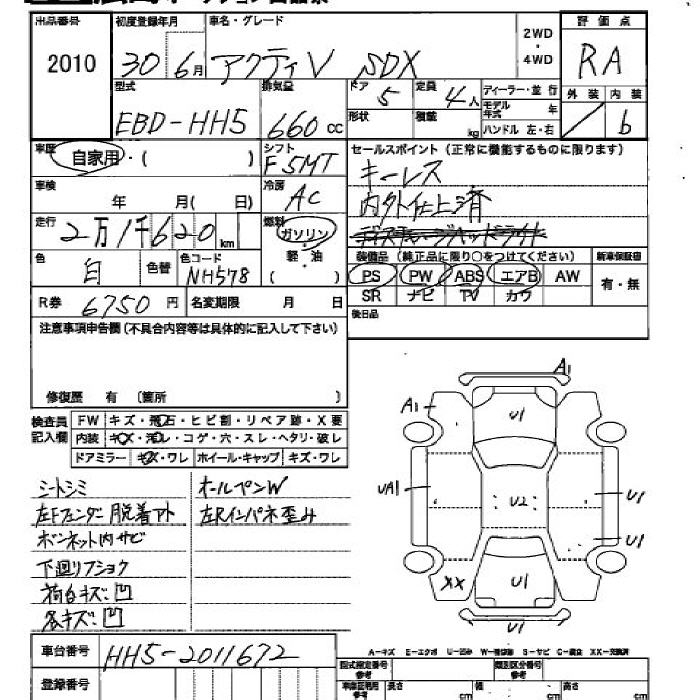 出品番号 初度登録年月 車名・グレード 2WD・4WD 評価点
2010 30年6月 アクティV SDX RA
型式 排気量 ドア 定員 ディーラー・並行 外装 内装
EBD-HH5 660cc 5 4人 モデル年式 年 b
形状 積載 kg ハンドル 左・右
車歴 シフト セールスポイント (正常に機能するものに限ります)
自家用・( ) F5MT キーレス
車検 冷房 内外仕上済
年 月( 日) AC
走行 燃料 ディスチャージヘッドライト
2万1千620km ガソリン・軽・油 ( )
装備品 (純正品に限り○をつけてください) 新車保証書
色 色替 色コード PS PW ABS エアB AW 有・無
白 NH578 SR ナビ TV カワ
R券 6750円 名変期限 月 日 後日品
注意事項申告欄 (不具合内容等は具体的に記入して下さい)
修復歴 有 [箇所 ]
検査員記入欄 FW キズ・飛石・ヒビ割・リペア跡・X要
内装 キズ・汚レ・コゲ・穴・スレ・ヘタリ・破レ
ドアミラー キズ・ワレ ホイール・キャップ キズ・ワレ
シートシミ オールペンW
左Fフェンダー脱着アト 左Rインパネ歪み
ボンネット内サビ
下廻リフショク
荷台キズ凹
各キズ凹
A1
A1 U1
UA1 U2 U1
U1
XX U1
U1
A-キズ E-エクボ U-凹み W-補修跡 S-サビ C-腐食 XX-交換済
車台番号 HH5-2011672 型式指定番号 参考 類別区分番号 参考
登録番号 車庫証明用 参考 長さ cm 幅 cm 高さ cm